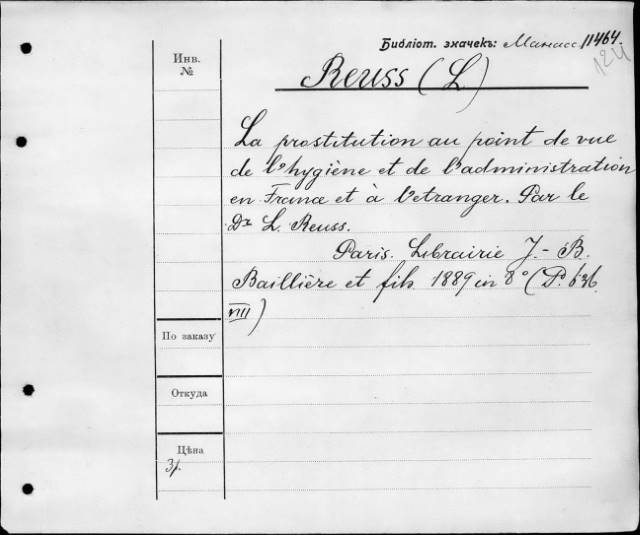 Библіот. значекъ: Манасс 11464
124
Инв.
№
Reuss (L.)
La prostitution au point de vue
de l'hygiène et de l'administration
en France et à l'etranger. Par le
Dr L. Reuss.
Paris. Librairie J.-B.
Baillière et fils 1889 in 8° (P. 636
VIII)
По заказу
Откуда
Цѣна
3р.